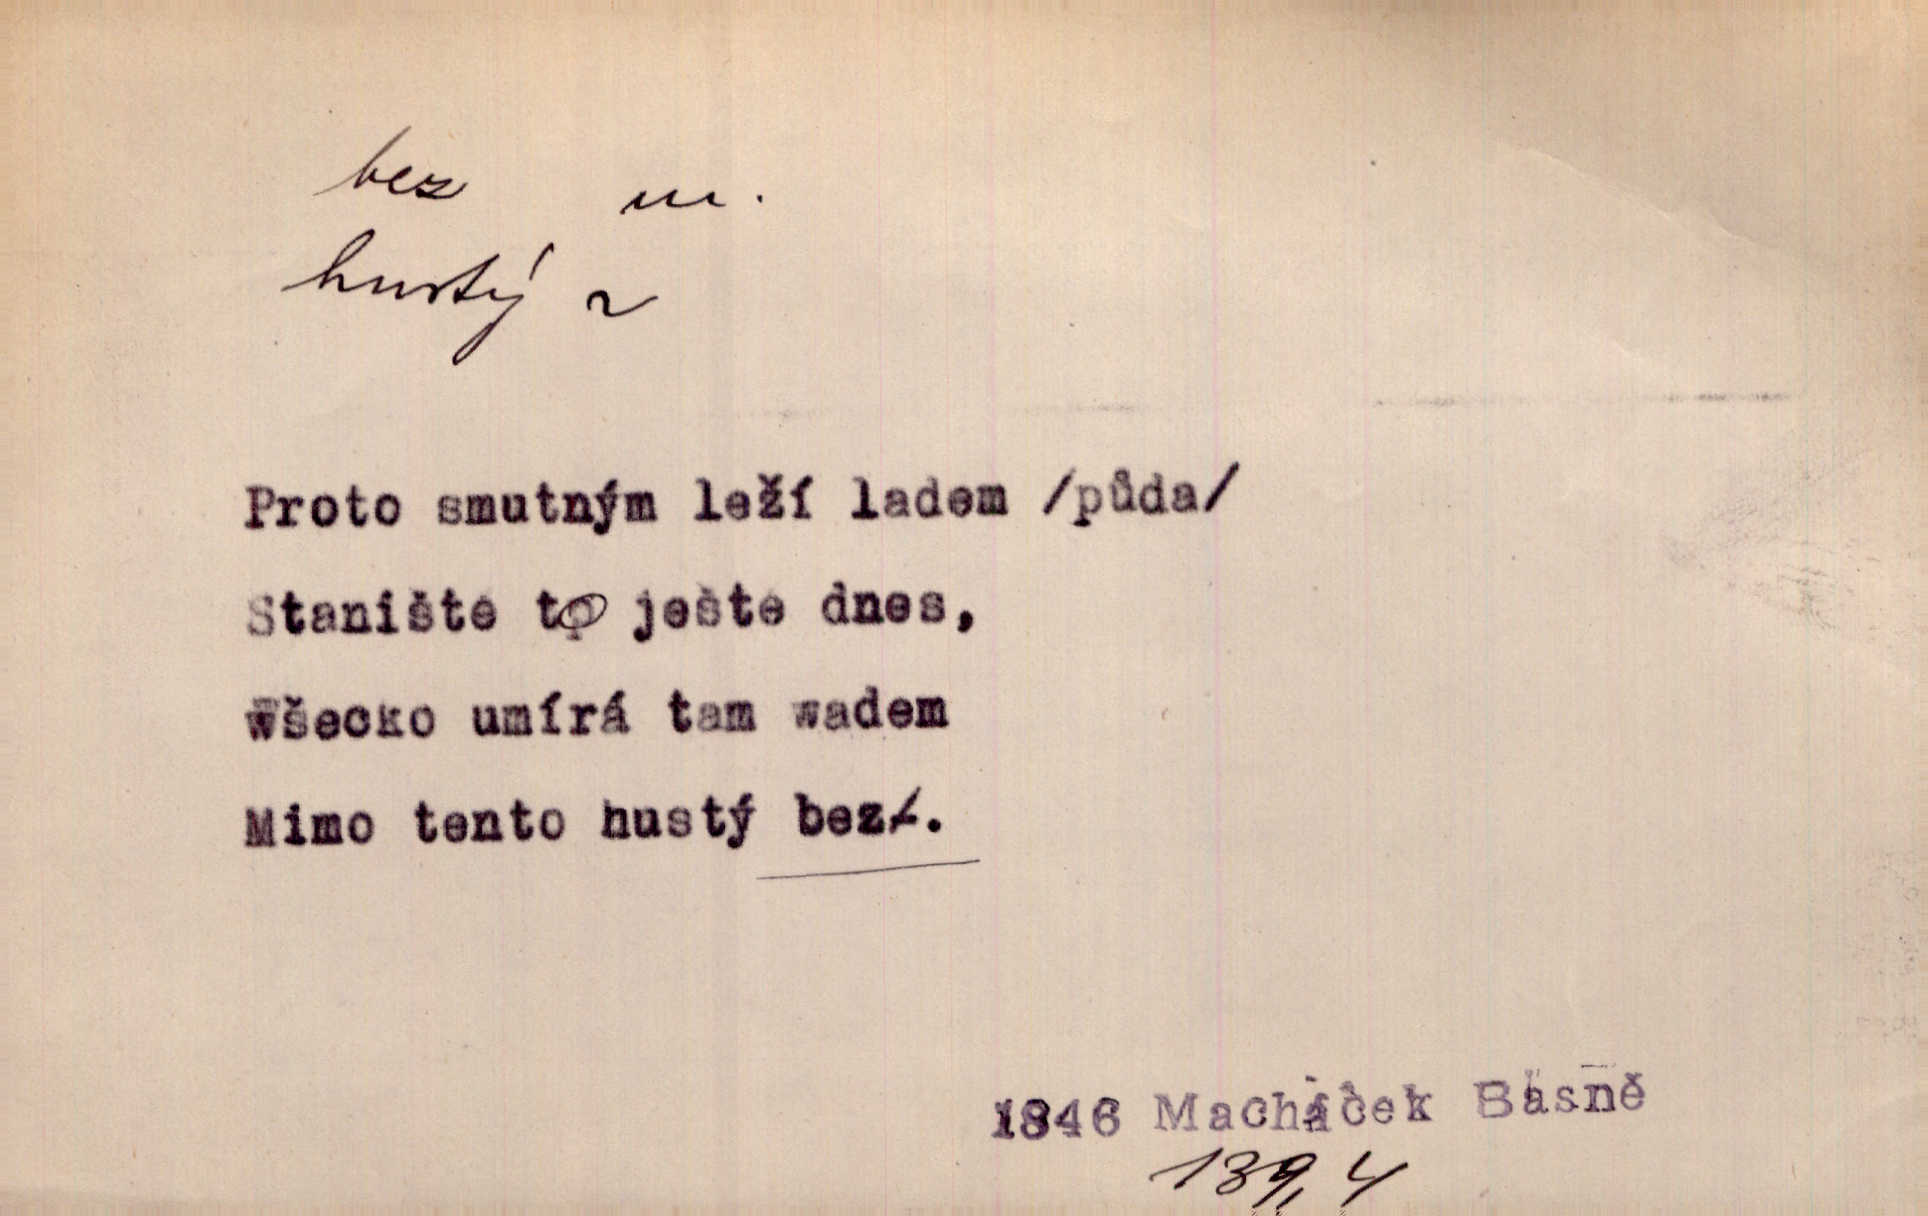 bez m.
hustý ~
Proto smutným leží ladem /půda/
Staniště to ještě dnes,
Wšecko umírá tam wadem
Mimo tento hustý bez.
1846 Macháček Básně
139, 4